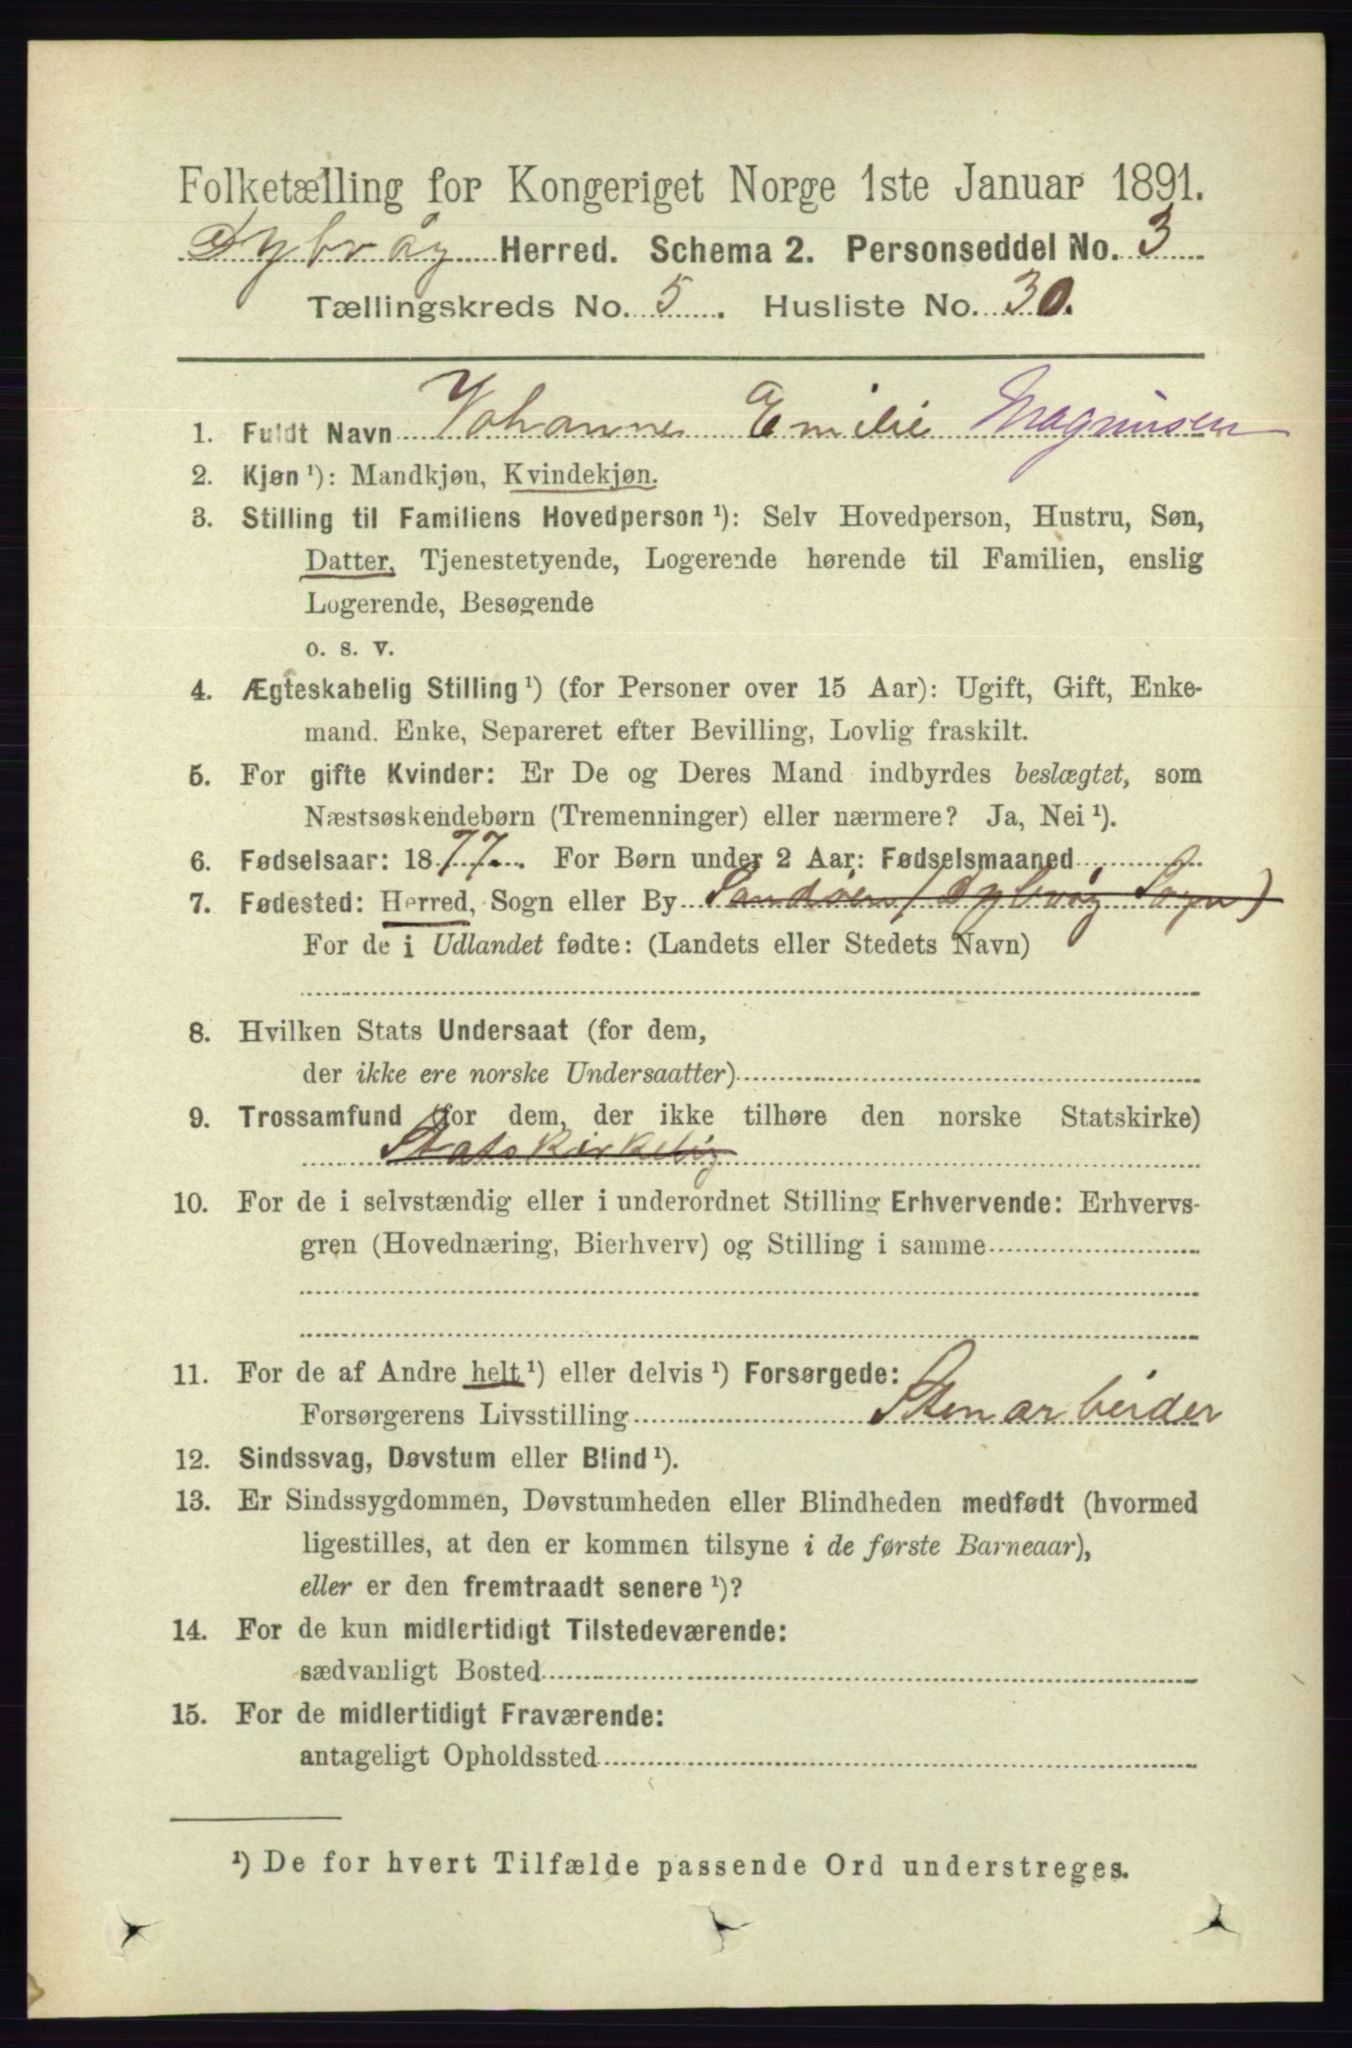 Folketælling for Kongeriget Norge 1ste Januar 1891.
Dybvåg Herred. Schema 2. Personseddel No. 3
Tællingskreds No. 5. Husliste No. 30.
1. Fuldt Navn Johanne Emilie Magnusen
2. Kjøn ¹): Mandkjøn, Kvindekjøn.
3. Stilling til Familiens Hovedperson ¹): Selv Hovedperson, Hustru, Søn,
Datter, Tjenestetyende, Logerende hørende til Familien, enslig
Logerende, Besøgende
o. s. v.
4. Ægteskabelig Stilling ¹) (for Personer over 15 Aar): Ugift, Gift, Enke-
mand. Enke, Separeret efter Bevilling, Lovlig fraskilt.
5. For gifte Kvinder: Er De og Deres Mand indbyrdes beslægtet, som
Næstsøskendebørn (Tremenninger) eller nærmere? Ja, Nei ¹).
6. Fødselsaar: 1877. For Børn under 2 Aar: Fødselsmaaned
7. Fødested: Herred, Sogn eller By Sandøen (Dybvåg Sogn)
For de i Udlandet fødte: (Landets eller Stedets Navn)
8. Hvilken Stats Undersaat (for dem,
der ikke ere norske Undersaatter)
9. Trossamfund (for dem, der ikke tilhøre den norske Statskirke)
Statskirkelig
10. For de i selvstændig eller i underordnet Stilling Erhvervende: Erhvervs-
gren (Hovednæring, Bierhverv) og Stilling i samme
11. For de af Andre helt ¹) eller delvis ¹) Forsørgede:
Forsørgerens Livsstilling Stenarbeider
12. Sindssvag, Døvstum eller Blind ¹).
13. Er Sindssygdommen, Døvstumheden eller Blindheden medfødt (hvormed
ligestilles, at den er kommen tilsyne i de første Barneaar),
eller er den fremtraadt senere ¹)?
14. For de kun midlertidigt Tilstedeværende:
sædvanligt Bosted
15. For de midlertidigt Fraværende:
antageligt Opholdssted
¹) De for hvert Tilfælde passende Ord understreges.